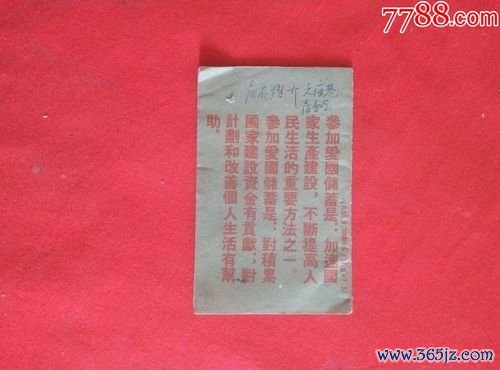 7788.com
參加愛國儲蓄是：加速國
家生產建設，不斷提高人
民生活的重要方法之一。
參加愛國儲蓄是：對積累
國家建設資金有貢獻；對
計劃和改善個人生活有幫
助。
www.365jz.com